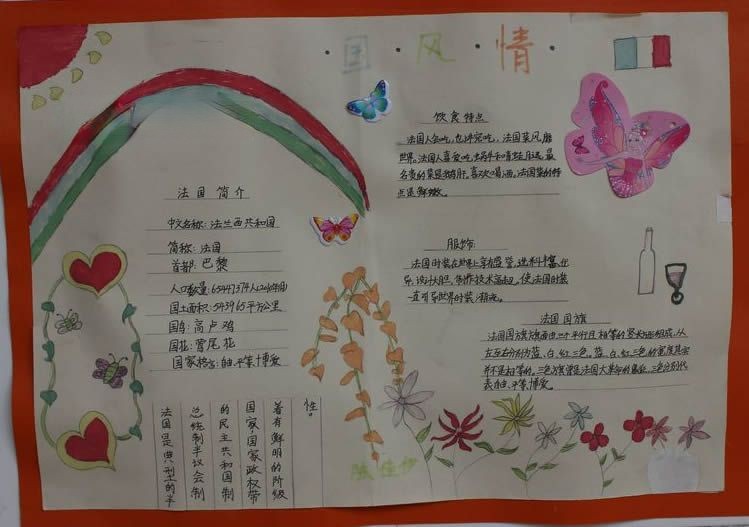 ·国·风·情·
法国简介
中文名称：法兰西共和国
简称：法国
首都：巴黎
国土面积：543965平方公里
国鸟：高卢鸡
国花：鸢尾花
国家格言：自由、平等、博爱
法国是典型的半
总统制半议会制
的民主共和国制
国家，国家政权带
着有鲜明的阶级
性。
饮食特点
法国人会吃，也讲究吃，法国菜风靡
世界。法国人喜爱吃蜗牛和青蛙腿，最
名贵的菜是鹅肝。喜欢喝酒。法国菜的特
点是鲜嫩。
服饰
法国时装在世界上享有盛誉，选料丰富、优
异，设计大胆，制作技术高超，使法国时装
一直引导世界时装潮流。
法国国旗
法国国旗旗面由三个平行且相等的竖长方形组成，从
左至右分别为蓝、白、红三色。蓝、白、红三色的宽度其实
并不是相等的。三色旗曾是法国大革命的象征，三色分别代
表自由、平等、博爱。